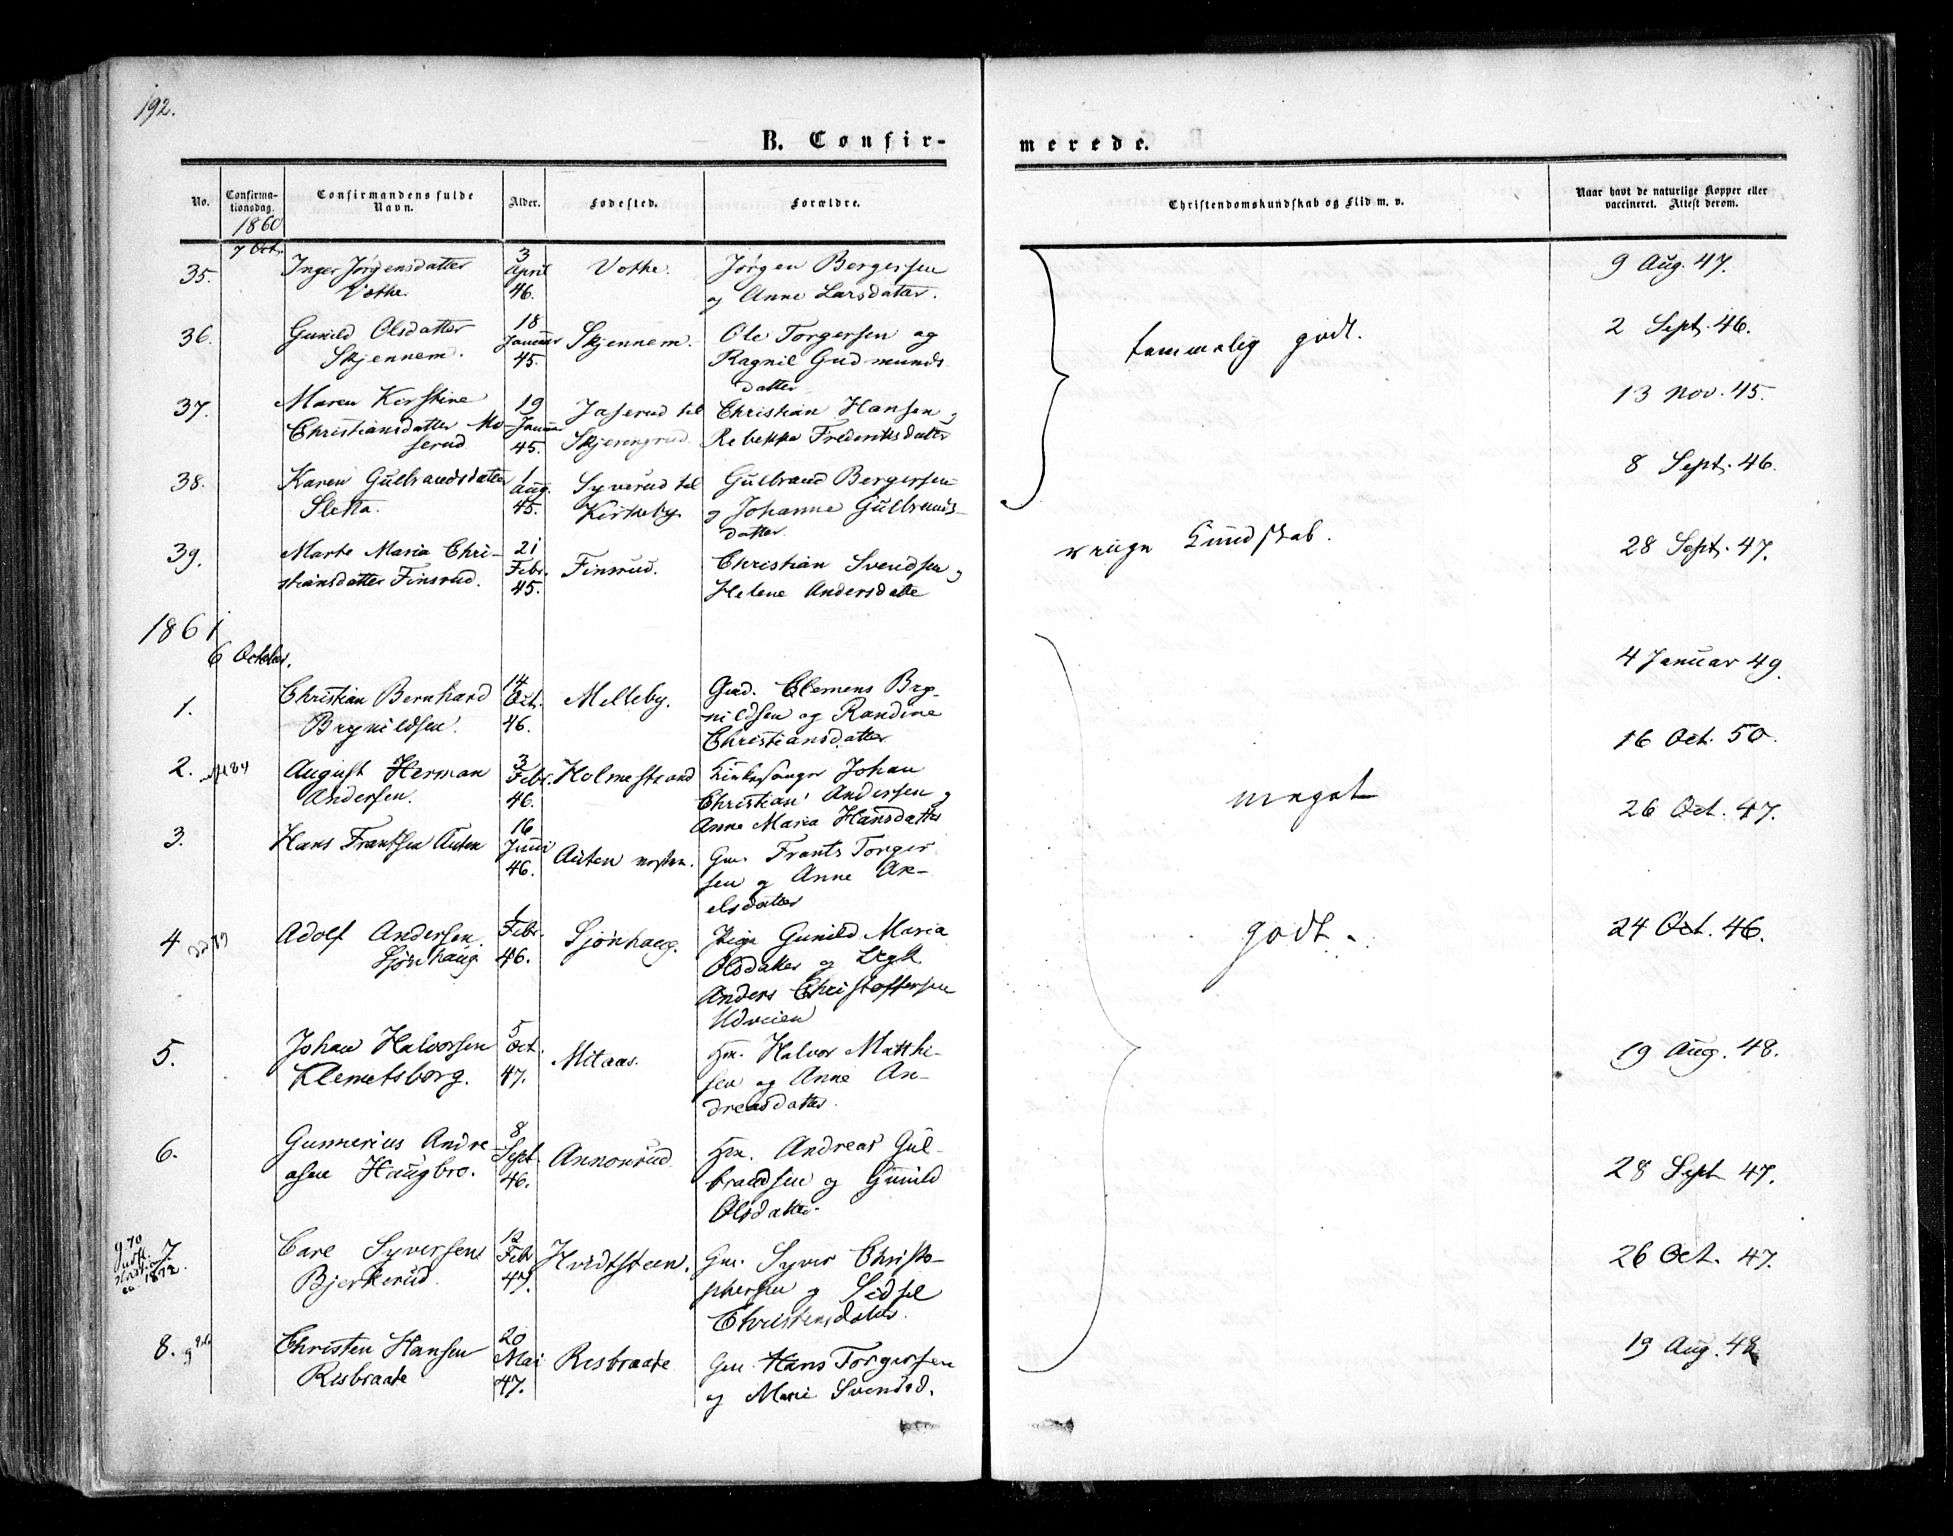 192.
B. Confir-
merede.
No.
Confirma-
tionsdag.
Confirmandens fulde
Navn.
Alder.
Fødested.
Forældre.
Christendomskundskab og Flid m. v.
Naar havt de naturlige Kopper eller
vaccineret. Attest derom.
1860
7 Oct.
35.
Inger Jørgensdatter
Vothe.
3
April
46.
Vothe.
Jørgen Bergersen
og Anne Larsdatter.
9 Aug. 47.
36.
Gunild Olsdatter
Skjennem.
18
Januar
45.
Skjennem.
Ole Torgersen og
Ragnil Gudmunds
datter
temmelig godt.
2 Sept. 46.
37.
Maren Kirstine
Christiansdatter Mo-
serud
19
Januar
45.
Jaserud til
Skjerengrud.
Christian Hansen og
Rebekka Frederiksdatter
13 Nov. 45.
38.
Karen Gulbrandsdatter
Sletta.
1
Aug.
45.
Syverud til
Kirkeby.
Gulbrand Bergersen
og Johanne Gulbrands-
datter.
8 Sept. 46.
39.
Marte Maria Chri-
stiansdatter Finsrud.
21
Febr.
45.
Finsrud.
Christian Svendsen og
Helene Andersdatte
ringe Kundskab.
28 Sept. 47.
1861
6 October.
1.
Christian Bernhard
Brynildsen.
14
Oct.
46.
Melleby.
Gmd. Clemens Bry-
nildsen og Randine
Christiansdatter
4 Januar 49.
2.
August Herman
Andersen.
3
Febr.
46.
Holmestrand
Kirkesanger Johan
Christian Andersen og
Anne Maria Hansdatter
meget
16 Oct. 50.
3.
Hans Frantsen Auten
16
Juni
46.
Auten nestan.
Gm. Frants Torger
sen og Anne Ax-
elsdatter
26 Oct. 47.
4
Adolf Andersen
Sjønhaug
1
Febr.
46.
Sjønhaug.
Pige Gunild Maria
Olsdatter og Ugk.
Anders Christoffersen
Udveien
godt.
24 Oct. 46.
5.
Johan Halvorsen
Klemetsborg.
5
Oct.
47.
Mitaas.
Hm. Halvor Matthi-
sen og Anne An-
dreasdatter.
19 Aug. 48.
6.
Gunnerius Andre
asen Haugbro.
8
Sept
46.
Annonrud
Hm. Andreas Gul-
brandsen og Gunild
Olsdatter.
28 Sept 47.
7.
1872.
Carl Syversen
Bjerkerud.
12
Febr
47.
Hvidtsteen.
Gm. Syver Christo-
phersen og Sidsel
Christensdatter.
26 Oct. 47.
8.
Christen Hansen
Risbraate
20
Mai
47.
Risbraate
Gm. Hans Torgersen
og Marie Svendsd.
19 Aug. 48